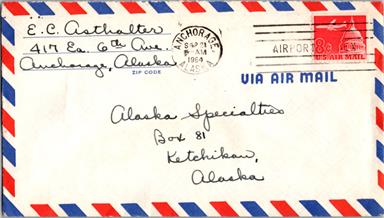 E.C. Asthalter
417 Ea. 6th Ave.
Anchorage, Alaska
ZIP CODE
ANCHORAGE
SEP 21
AM
1964
ALASKA
AIRPORT
8¢
U.S. AIR MAIL
VIA AIR MAIL
Alaska Specialties
Box 81
Ketchikan,
Alaska